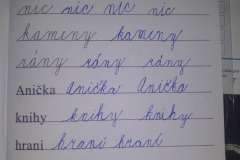 nic nic nic nic
kameny kameny
rány rány rány
Anička Anička Anička
knihy knihy knihy
hraní hraní hraní